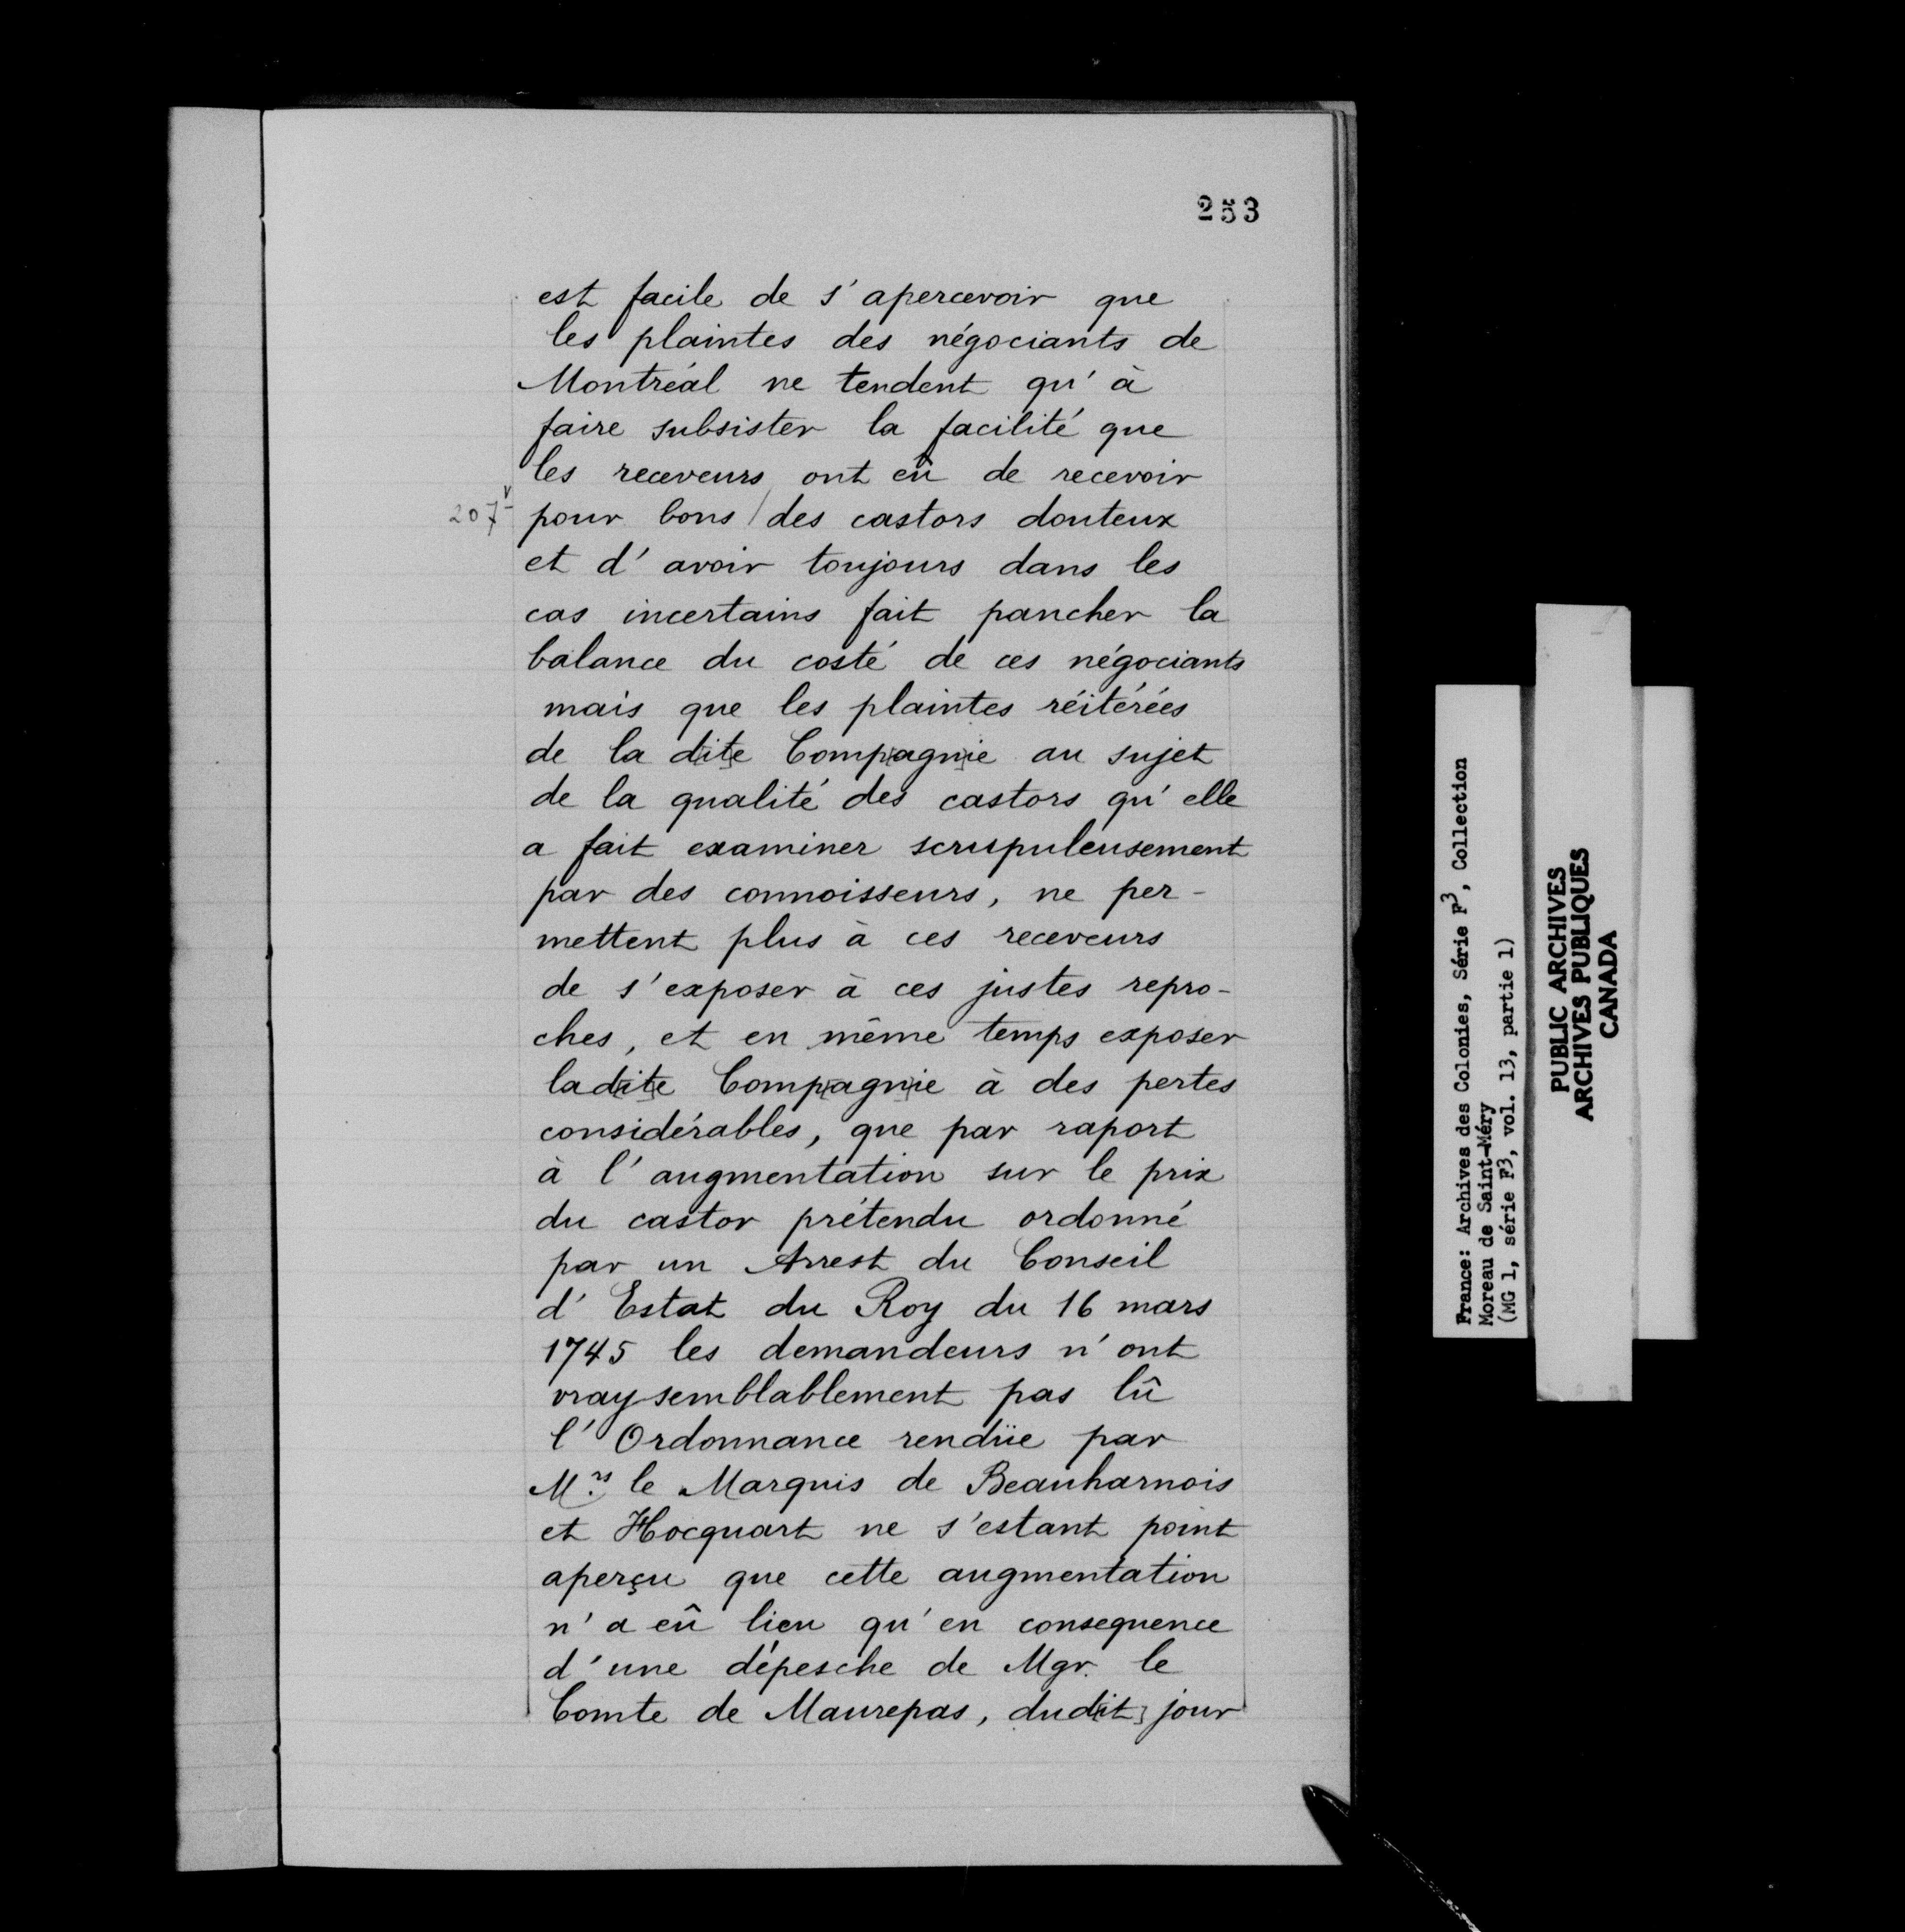 253
est facile de s'apercevoir que
les plaintes des négociants de
Montréal ne tendent qu'à
faire subsister la facilité que
les receveurs ont eû de recevoir
207v pour bons / des castors douteux
et d'avoir toujours dans les
cas incertains fait pancher la
balance du costé de ces négociants
mais que les plaintes réitérées
de la d[it]e Comp[agn]ie au sujet
de la qualité des castors qu'elle
a fait examiner scrupuleusement
par des connoisseurs, ne per-
mettent plus à ces receveurs
de s'exposer à ces justes repro-
ches, et en même temps exposer
lad[it]e Comp[agn]ie à des pertes
considérables, que par raport
à l'augmentation sur le prix
du castor prétendu ordonné
par un Arrest du Conseil
d'Estat du Roy du 16 mars
1745 les demandeurs n'ont
vraysemblablement pas lû
l'Ordonnance rendüe par
M.rs le Marquis de Beauharnois
et Hocquart ne s'estant point
aperçu que cette augmentation
n'a eû lieu qu'en consequence
d'une dépesche de Mgr. le
Comte de Maurepas, dud[it] jour
France: Archives des Colonies, Série F3, Collection
Moreau de Saint-Méry
(MG 1, série F3, vol. 13, partie 1)
PUBLIC ARCHIVES
ARCHIVES PUBLIQUES
CANADA